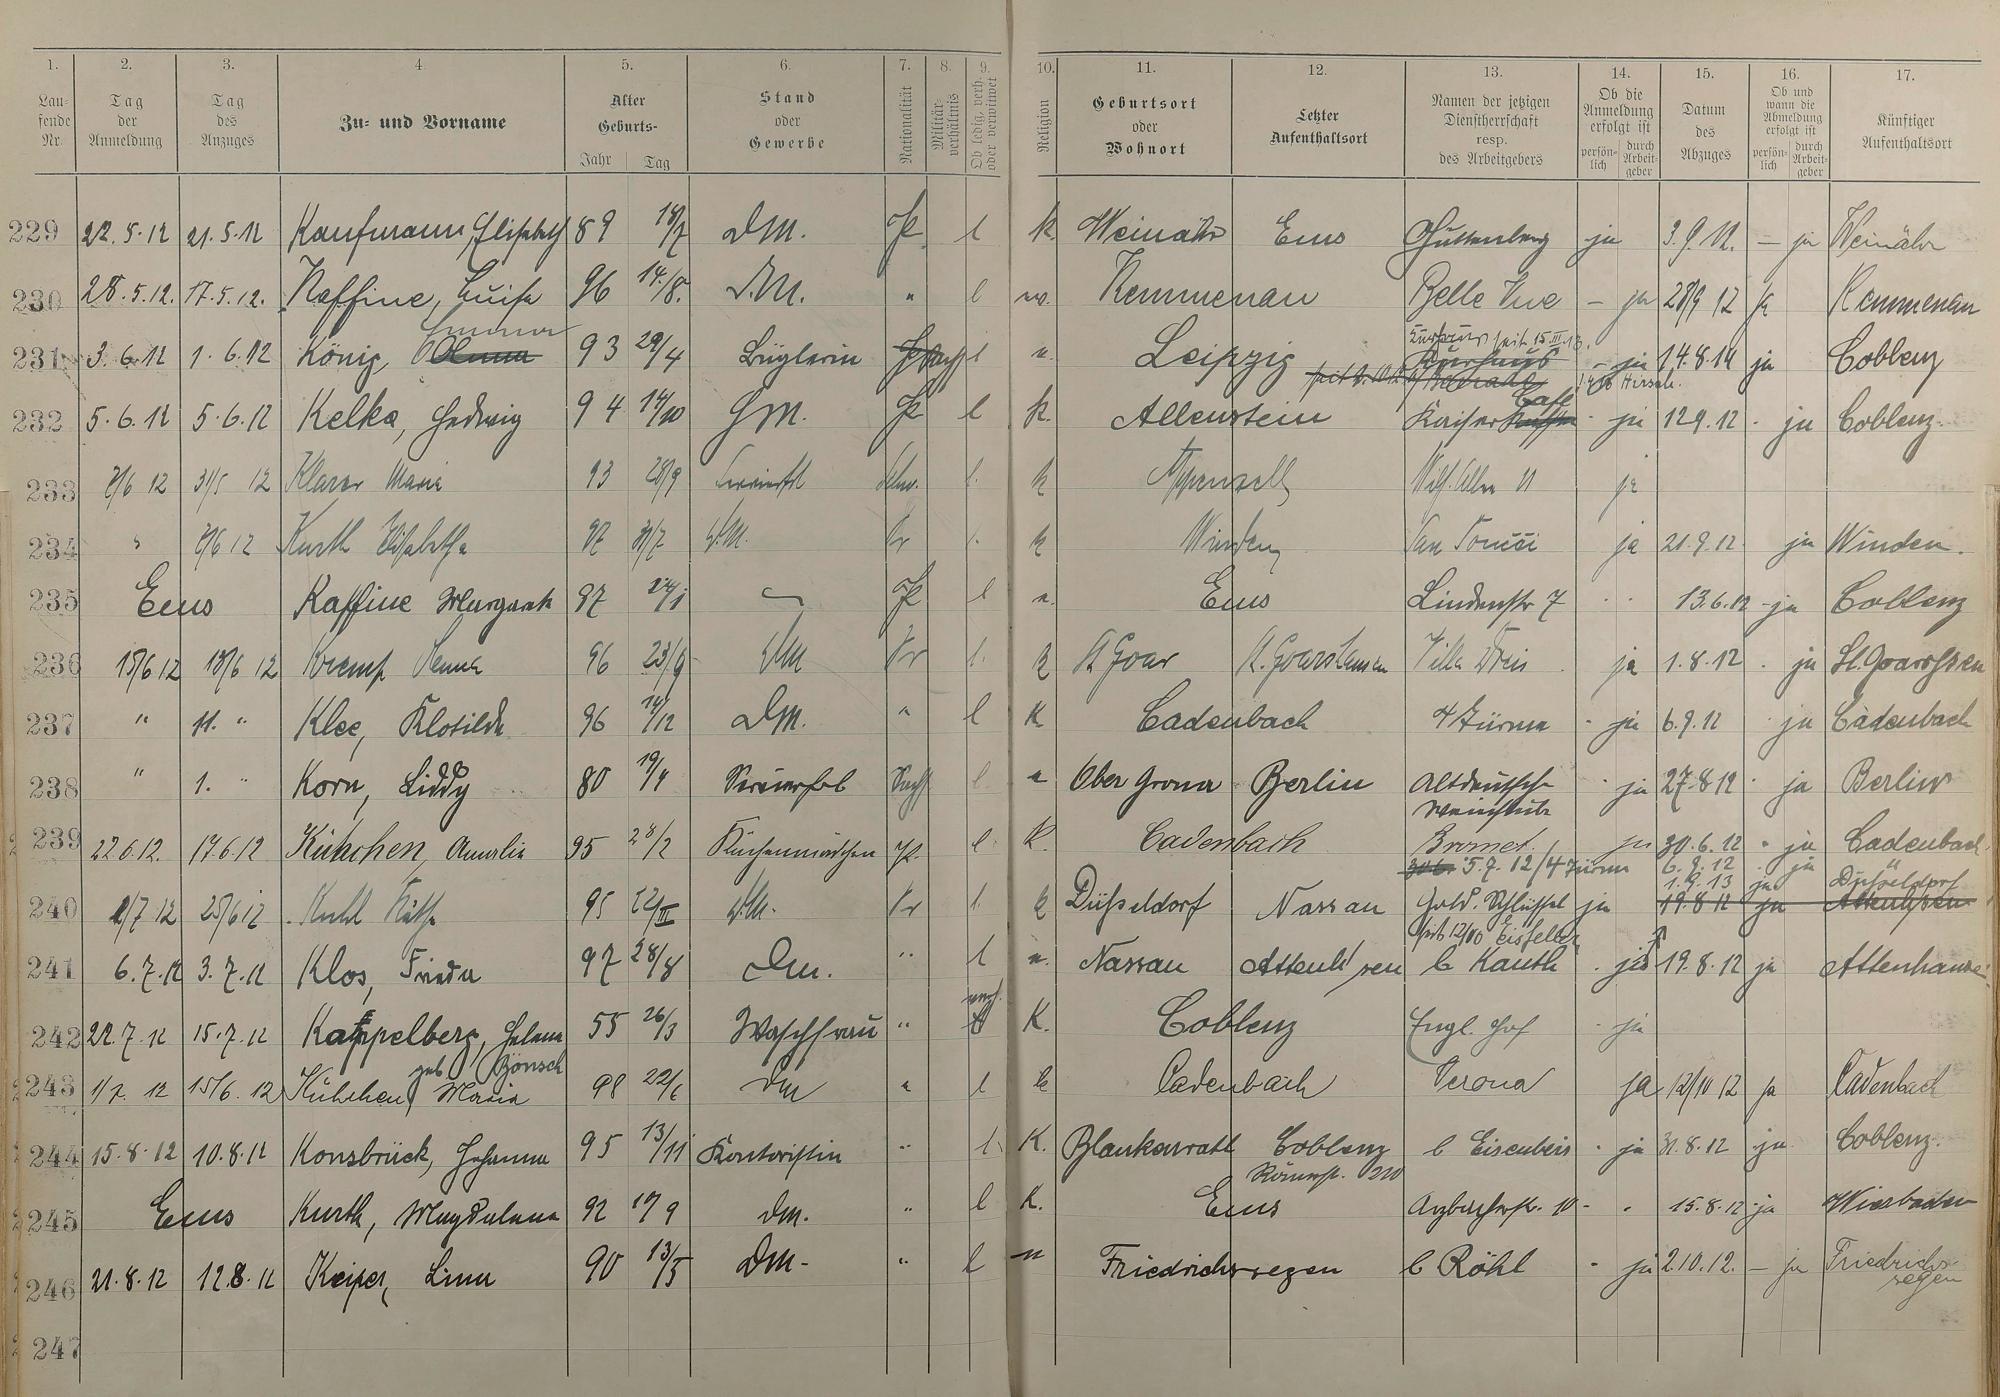 1. 2. 3. 4. 5. 6. 7. 8. 9. 10. 11. 12. 13. 14. 15. 16. 17.
Lau-
fende
Nr.
Tag
der
Anmeldung
Tag
des
Anzuges
Zu- und Vorname
Alter
Geburts-
Jahr Tag
Stand
oder
Gewerbe
Nationalität
Militär-
verhältnis
Ob ledig, verh.
oder verwitwet
Religion
Geburtsort
oder
Wohnort
Letzter
Aufenthaltsort
Namen der jetzigen
Dienstherrschaft
resp.
des Arbeitgebers
Ob die
Anmeldung
erfolgt ist
persön-
lich
durch
Arbeit-
geber
Datum
des
Abzuges
Ob und
wann die
Abmeldung
erfolgt ist
persön-
lich
durch
Arbeit-
geber
Künftiger
Aufenthaltsort
229 22.5.12 21.5.12 Kaufmann, Elisabeth 89 18/7 DM. l k. Weinähr Ems Guttenberg ja 3.9.12. — ja Weinähr
230 28.5.12. 17.5.12. Kaffine, Luise 96 14./8. D.M. " l Kemmenau Belle Vue – ja 28/9 12 ja Kemmenau
Emma Kurhaus seit 15.III.13.
231 3.6.12 1.6.12 König, 93 29/4 Büglerin l Leipzig Kurhaus - ja 14.8.14 ja Coblenz
Café
232 5.6.12 5.6.12 Kelka, Hedwig 94 14/10 l k. Allenstein Kaiser ja 12 9.12 . ja Coblenz.
233 31/5 12 Klarer Maria 93 28/9 l. k Appenzell ja
234 Kurth Elisabetha 97 l. k Winden San Soucci ja 21.9.12 ja Winden.
235 Ems Kaffine Margareth 97 24/1 l Ems Lindenstr 7 13.6.12 - ja Coblenz
236 15/6 12 13/6 12 Kremp 96 l. k St Goar St. Goarshausen Villa ja 1.8.12 . ja St. Goarshsen
237 " 11. " Klee, Klotilde 96 14/12 DM. " l K Cadenbach 4 Türme - ja 6.9.12 ja Cadenbach
238 " 1. " Korn, Liddy 80 19/4 l. Ober Grona Berlin Altdeutsche ja 27.8 12 ja Berlin
Weinstube
239 22.6.12. 17.6.12 Kühchen, Amalie 95 28/2 Küchenmädchen l. K. Cadenbach ja 30.6.12 ja Cadenbach
5.7.12 / 4 Türme 6.8.12 ja "
1.9.13 ja Düsseldorf
240 25/6 12 Käthe 95 22/III l k Düsseldorf Nassau Gold. Schlüssel ja 19.8 12 ja Attenhsen
seit 12/10
241 6.7.12 3.7.12 Klos, Frieda 97 28/8 Dm. " l Nassau Attenh'sen b Kauth . ja 19.8.12 ja Attenhausen
242 22.7.12 15.7.12 Kappelberg, Helena 55 26/3 Waschfrau " K. Coblenz Engl. Hof - ja
geb Bönsch
243 1/7. 12 15/6. 12 Kühchen, Maria 98 22/6 Dm " l k Cadenbach Verona ja 12/10 12 ja Cadenbach
244 15.8.12 10.8.12 Konsbrück, Johanna 95 13/11 Kontoristin " l. K. Blankenrath Coblenz b Eisenbeis - ja 31.8.12 ja Coblenz.
245 Ems Kurth, Magdalena 92 17 9 Dm. " l K. Ems Arzbacherstr. 10 - 15.8.12 ja Wiesbaden
246 21.8.12 12.8.12 Keiper, Lina 90 13/5 Dm- " l Friedrichssegen b Röhl - ja 2.10.12. – ja Friedrichs-
segen
247